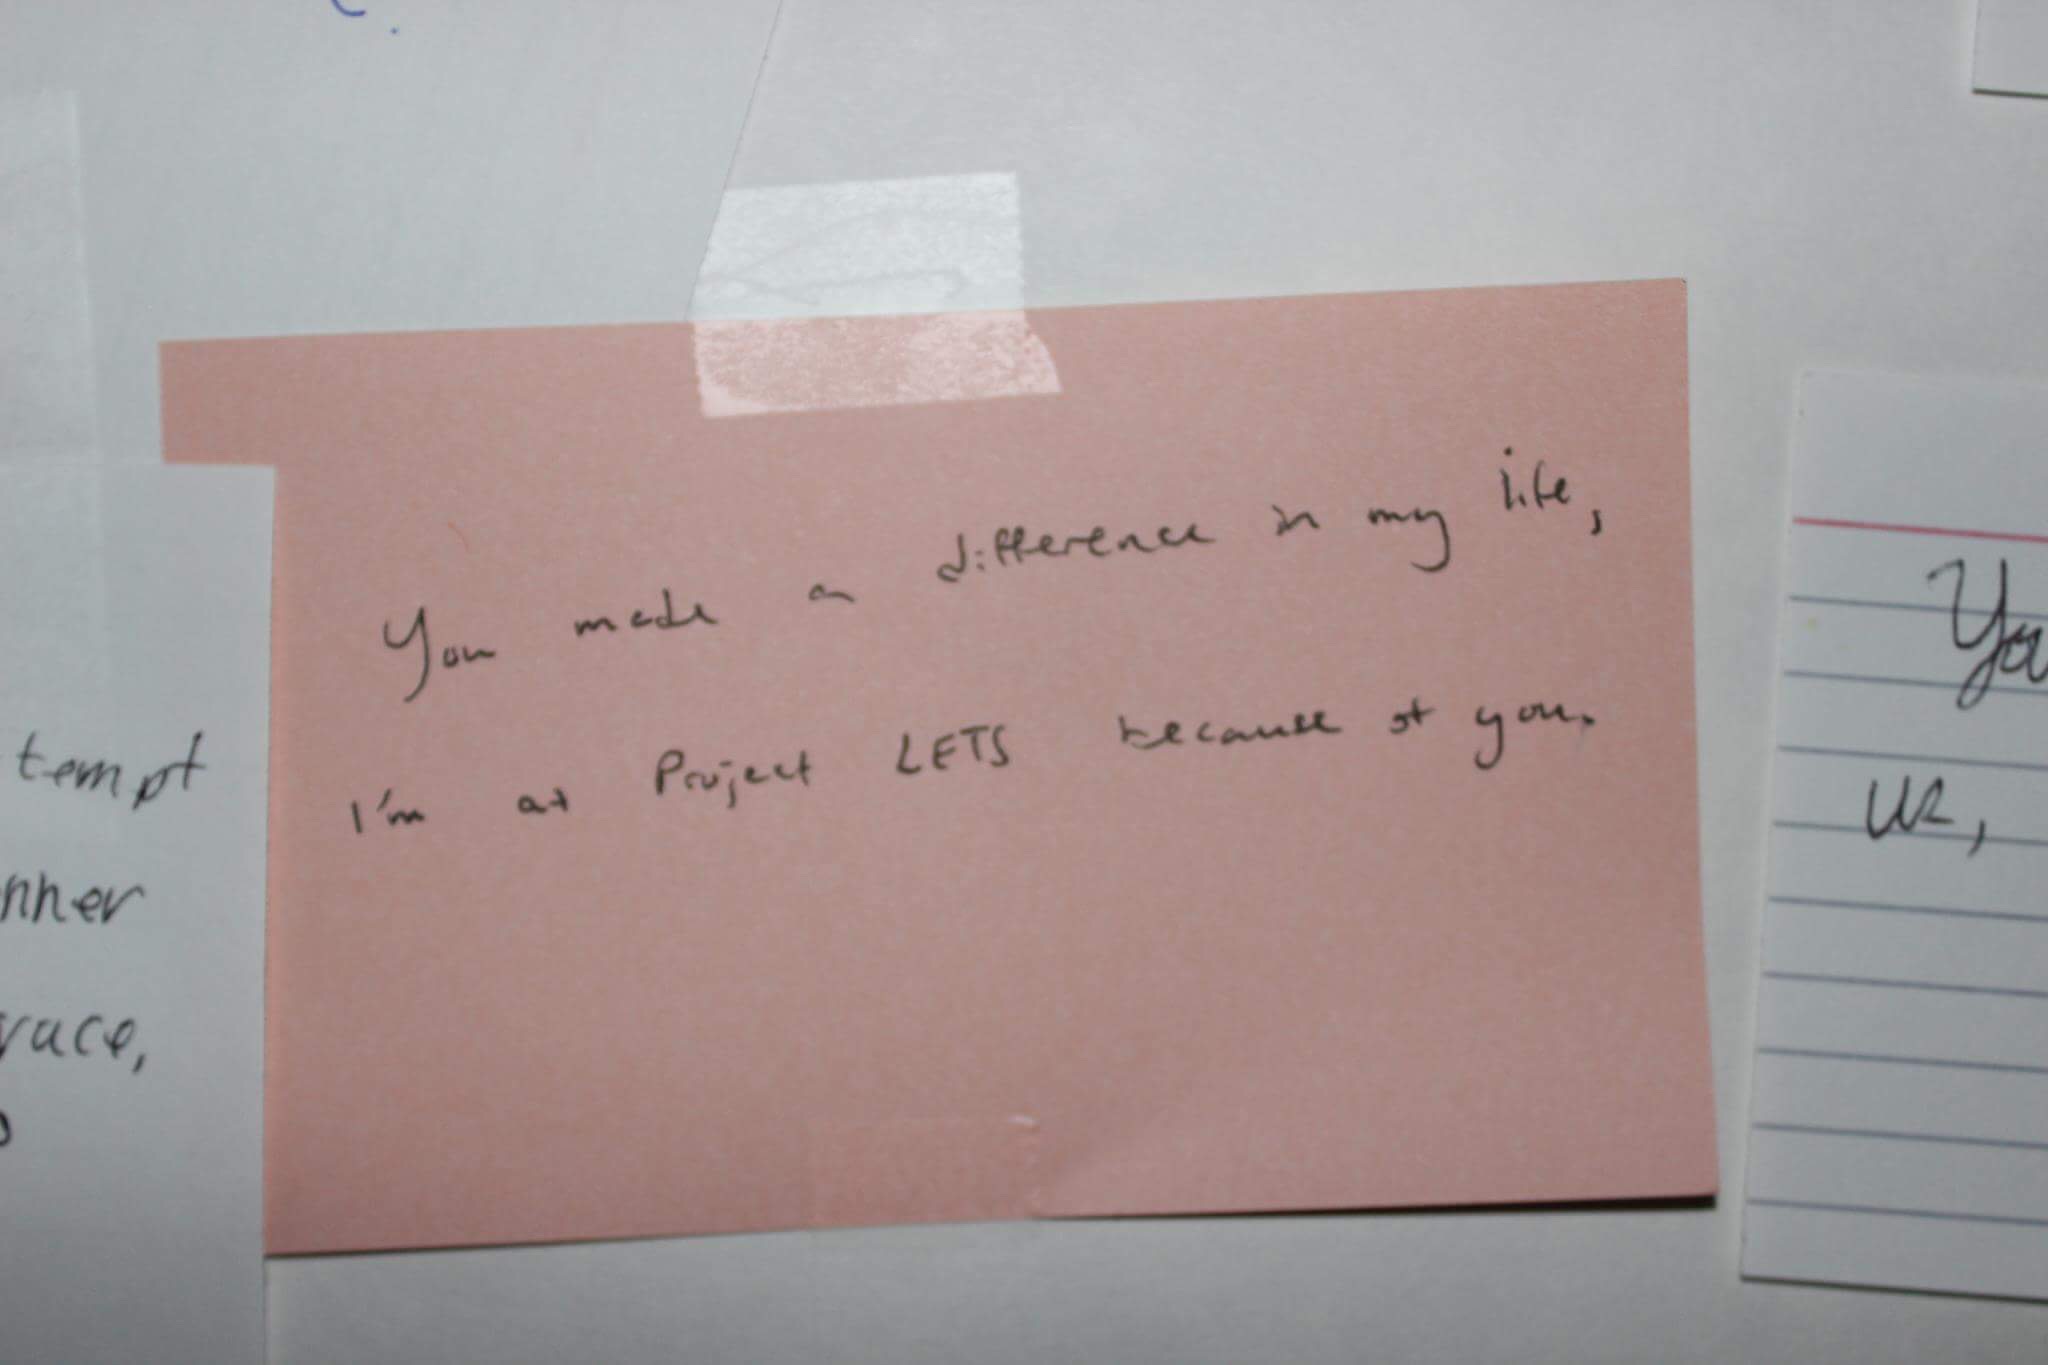 You made a difference in my life,
I'm at Project LETS because of you.
tempt
nner
race,
You
us,